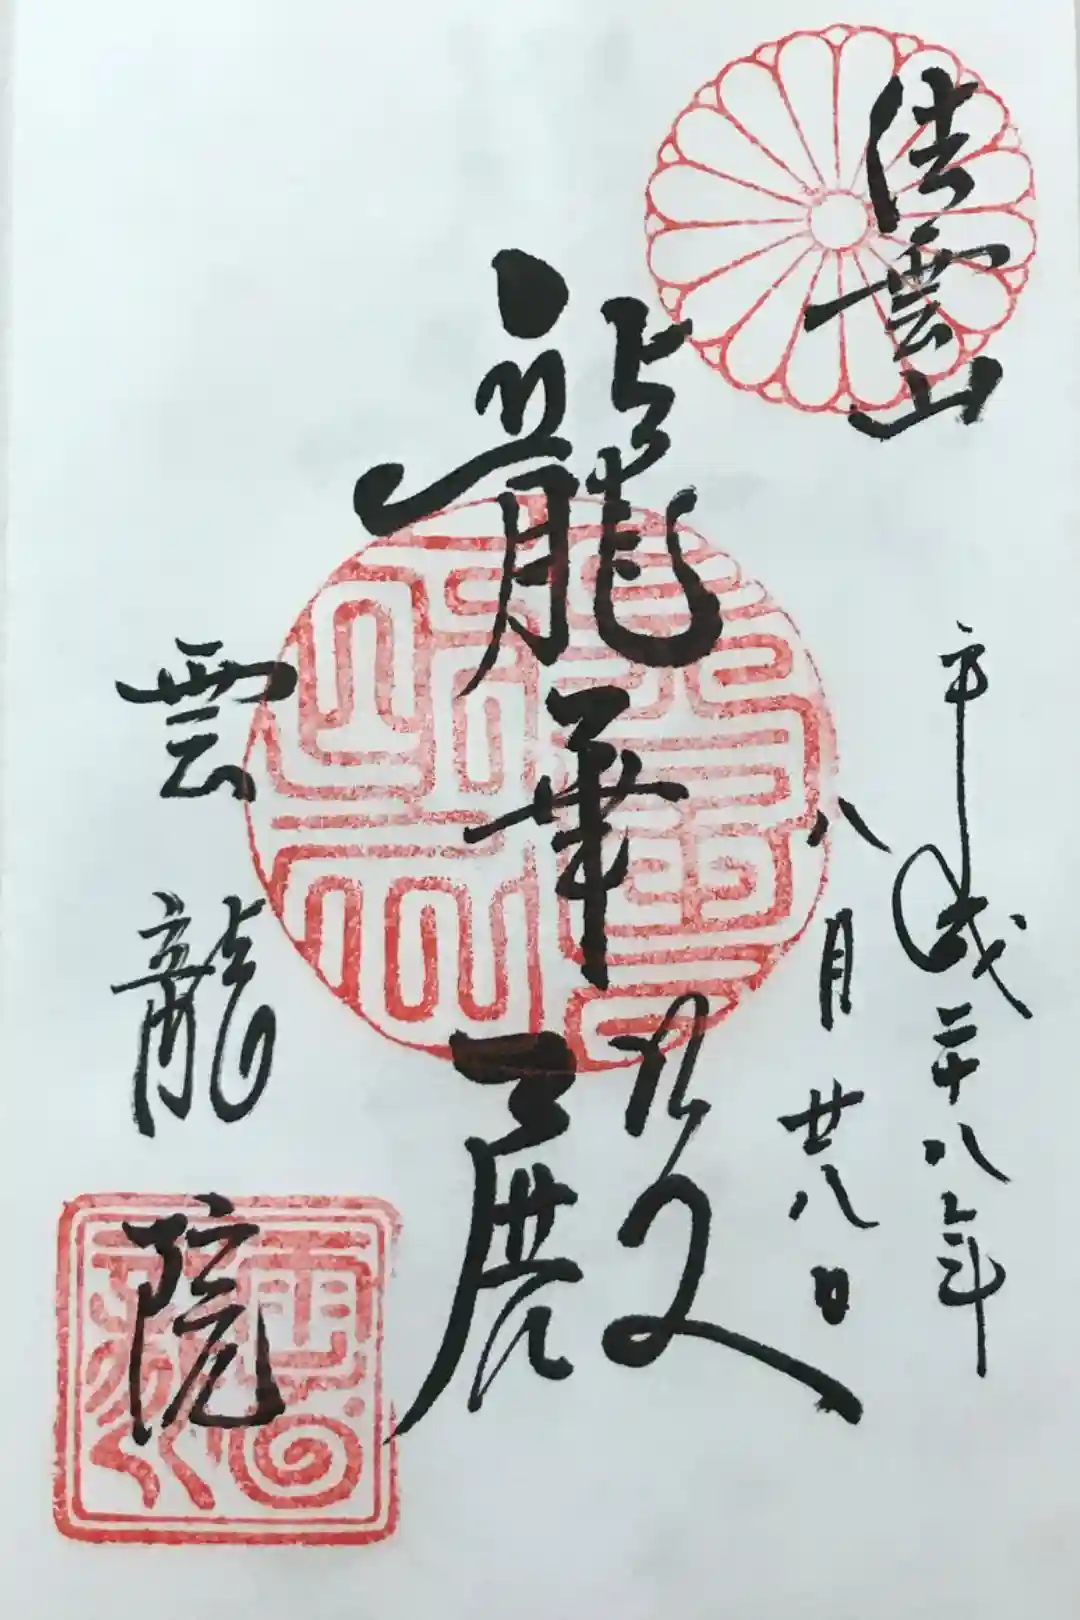 瑞雲山
平成二十八年
八月廿八日
龍華殿
雲龍院